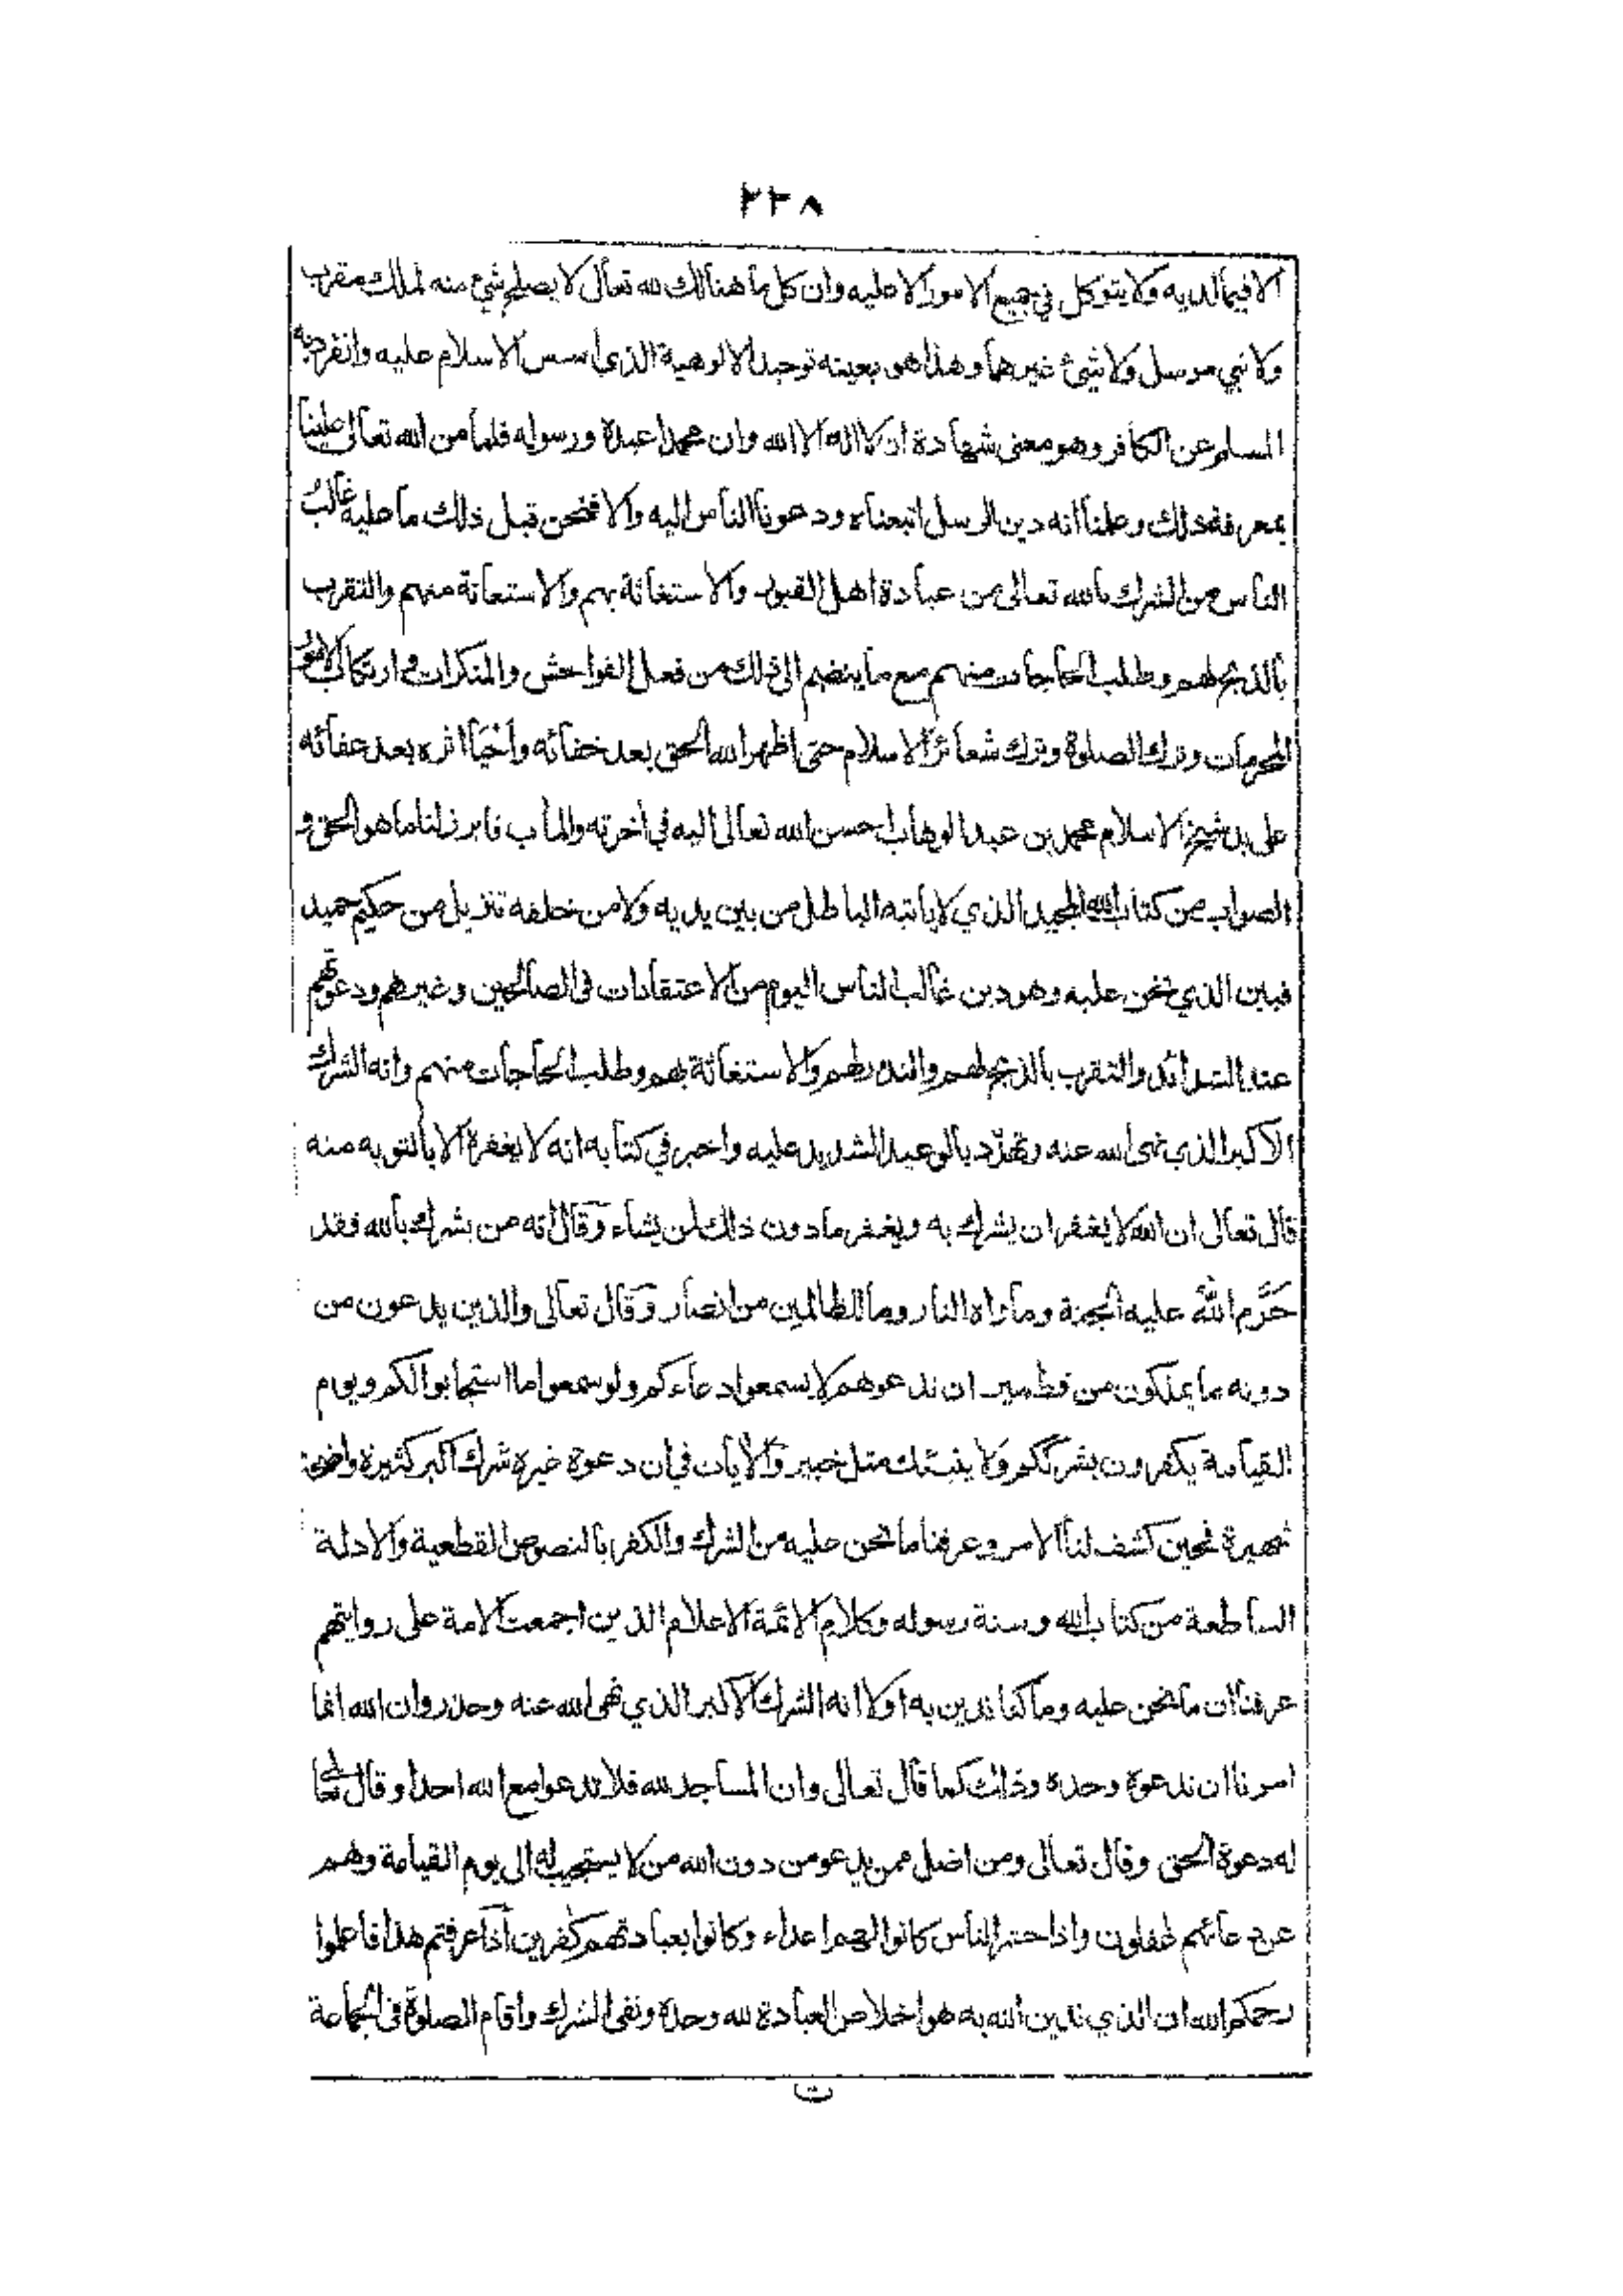 ٢٣٨
الا فيما لديه ولا يتوكل في جميع الامور الا عليه وان كل ما هنالك لله تعالى لا يصلح شئ منه لملك مقرب
ولا نبي مرسل ولا شئ غيرهما وهذا هو بعينه توحيد الالوهية الذي اسس الاسلام عليه وانفرد به
المسلم عن الكافر وهو معنى شهادة ان لا اله الا الله وان محمدا عبده ورسوله فلما من الله تعالى علينا
بمعرفة ذلك وعلمنا انه دين الرسل اتبعناه ودعونا الناس اليه والا فنحن قبل ذلك ما عليه غالب
الناس من الشرك بالله تعالى من عبادة اهل القبور والاستغاثة بهم والاستعانة منهم والتقرب
بالذبح لهم وطلب الحاجات منهم مع ما ينضم الى ذلك من فعل الفواحش والمنكرات وارتكاب الامور
المحرمات وترك الصلوة وترك شعائر الاسلام حتى اظهر الله الحق بعد خفائه واحيا اثره بعد عفائه
على يد شيخ الاسلام محمد بن عبد الوهاب احسن الله تعالى اليه في اخرته والمأب فابرز لنا ما هو الحق و
الصواب من كتاب الله المجيد الذي لا يأتيه الباطل من بين يديه ولا من خلفه تنزيل من حكيم حميد
فبين الذي نحن عليه وهو دين غالب الناس اليوم من الاعتقادات في الصالحين وغيرهم ودعوتهم
عند الشدائد والتقرب بالذبح لهم والنذر لهم والاستغاثة بهم وطلب الحاجات منهم وانه الشرك
الاكبر الذي نهى الله عنه وتهدّد بالوعيد الشديد عليه واخبر في كتابه انه لا يغفره الا بالتوبه منه
قال تعالى ان الله لا يغفر ان يشرك به ويغفر ما دون ذلك لمن يشاء وقال انه من يشرك بالله فقد
حَرَّم اللهُ عليه الجنة ومأواه النار وما للظالمين من انصار وقال تعالى والذين يدعون من
دونه ما يملكون من قطمير ان تدعوهم لا يسمعوا دعاءكم ولو سمعوا ما استجابوا لكم ويوم
القيامة يكفرون بشرككم ولا ينبئك مثل خبير والأيات في ان دعوة غيره شرك اكبر كثيرة واضحة
شهيرة فحين كشف لنا الامر وعرفنا ما نحن عليه من الشرك والكفر بالنصوص القطعية والادلة
الساطعة من كتاب الله وسنة رسوله وكلام الائمة الاعلام الذين اجمعت الامة على روايتهم
عرفنا ان ما نحن عليه وما كنا ندين به اولا انه الشرك الاكبر الذي نهى الله عنه وحذر وان الله انما
امرنا ان ندعوه وحده وذلك كما قال تعالى وان المساجد لله فلا تدعوا مع الله احدا وقال تعالى
له دعوة الحق وقال تعالى ومن اضل ممن يدعو من دون الله من لا يستجيب له الى يوم القيامة وهم
عن دعائهم غفلون واذا حشر الناس كانوا لهم اعداء وكانوا بعبادتهم كفرين اذا عرفتم هذا فاعلموا
رحمكم الله ان الذي ندين الله به هو اخلاص العبادة لله وحده ونفى الشرك واقام الصلوة في الجماعة
ت